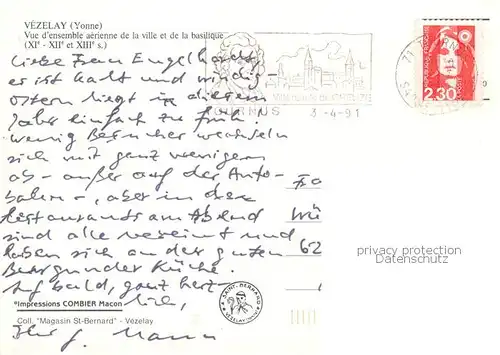 VÉZELAY (Yonne)
Vue d'ensemble aérienne de la ville et de la basilique
(XIᵉ - XIIᵉ et XIIIᵉ s.)
Liebe Frau Engelhardt,
es ist kalt und windig -
Ostern liegt in diesem
Jahr einfach zu früh -
wenig Besucher wechseln
sich mit ganz wenigen
ab - außer auf der Auto-
bahn -, aber in den
Restaurants am Abend
sind alle vereint und
laben sich an der guten
Burgunder Küche.
Auf bald, ganz herz-
lich,
Ihr J. Mann
Fa
Wü
62
TOURNUS
3 -4-91
71
RÉPUBLIQUE FRANÇAISE
2,30
privacy protection
Datenschutz
"Impressions COMBIER Macon"
Coll. "Magasin St-Bernard" - Vézelay
A SAINT BERNARD
VEZELAY